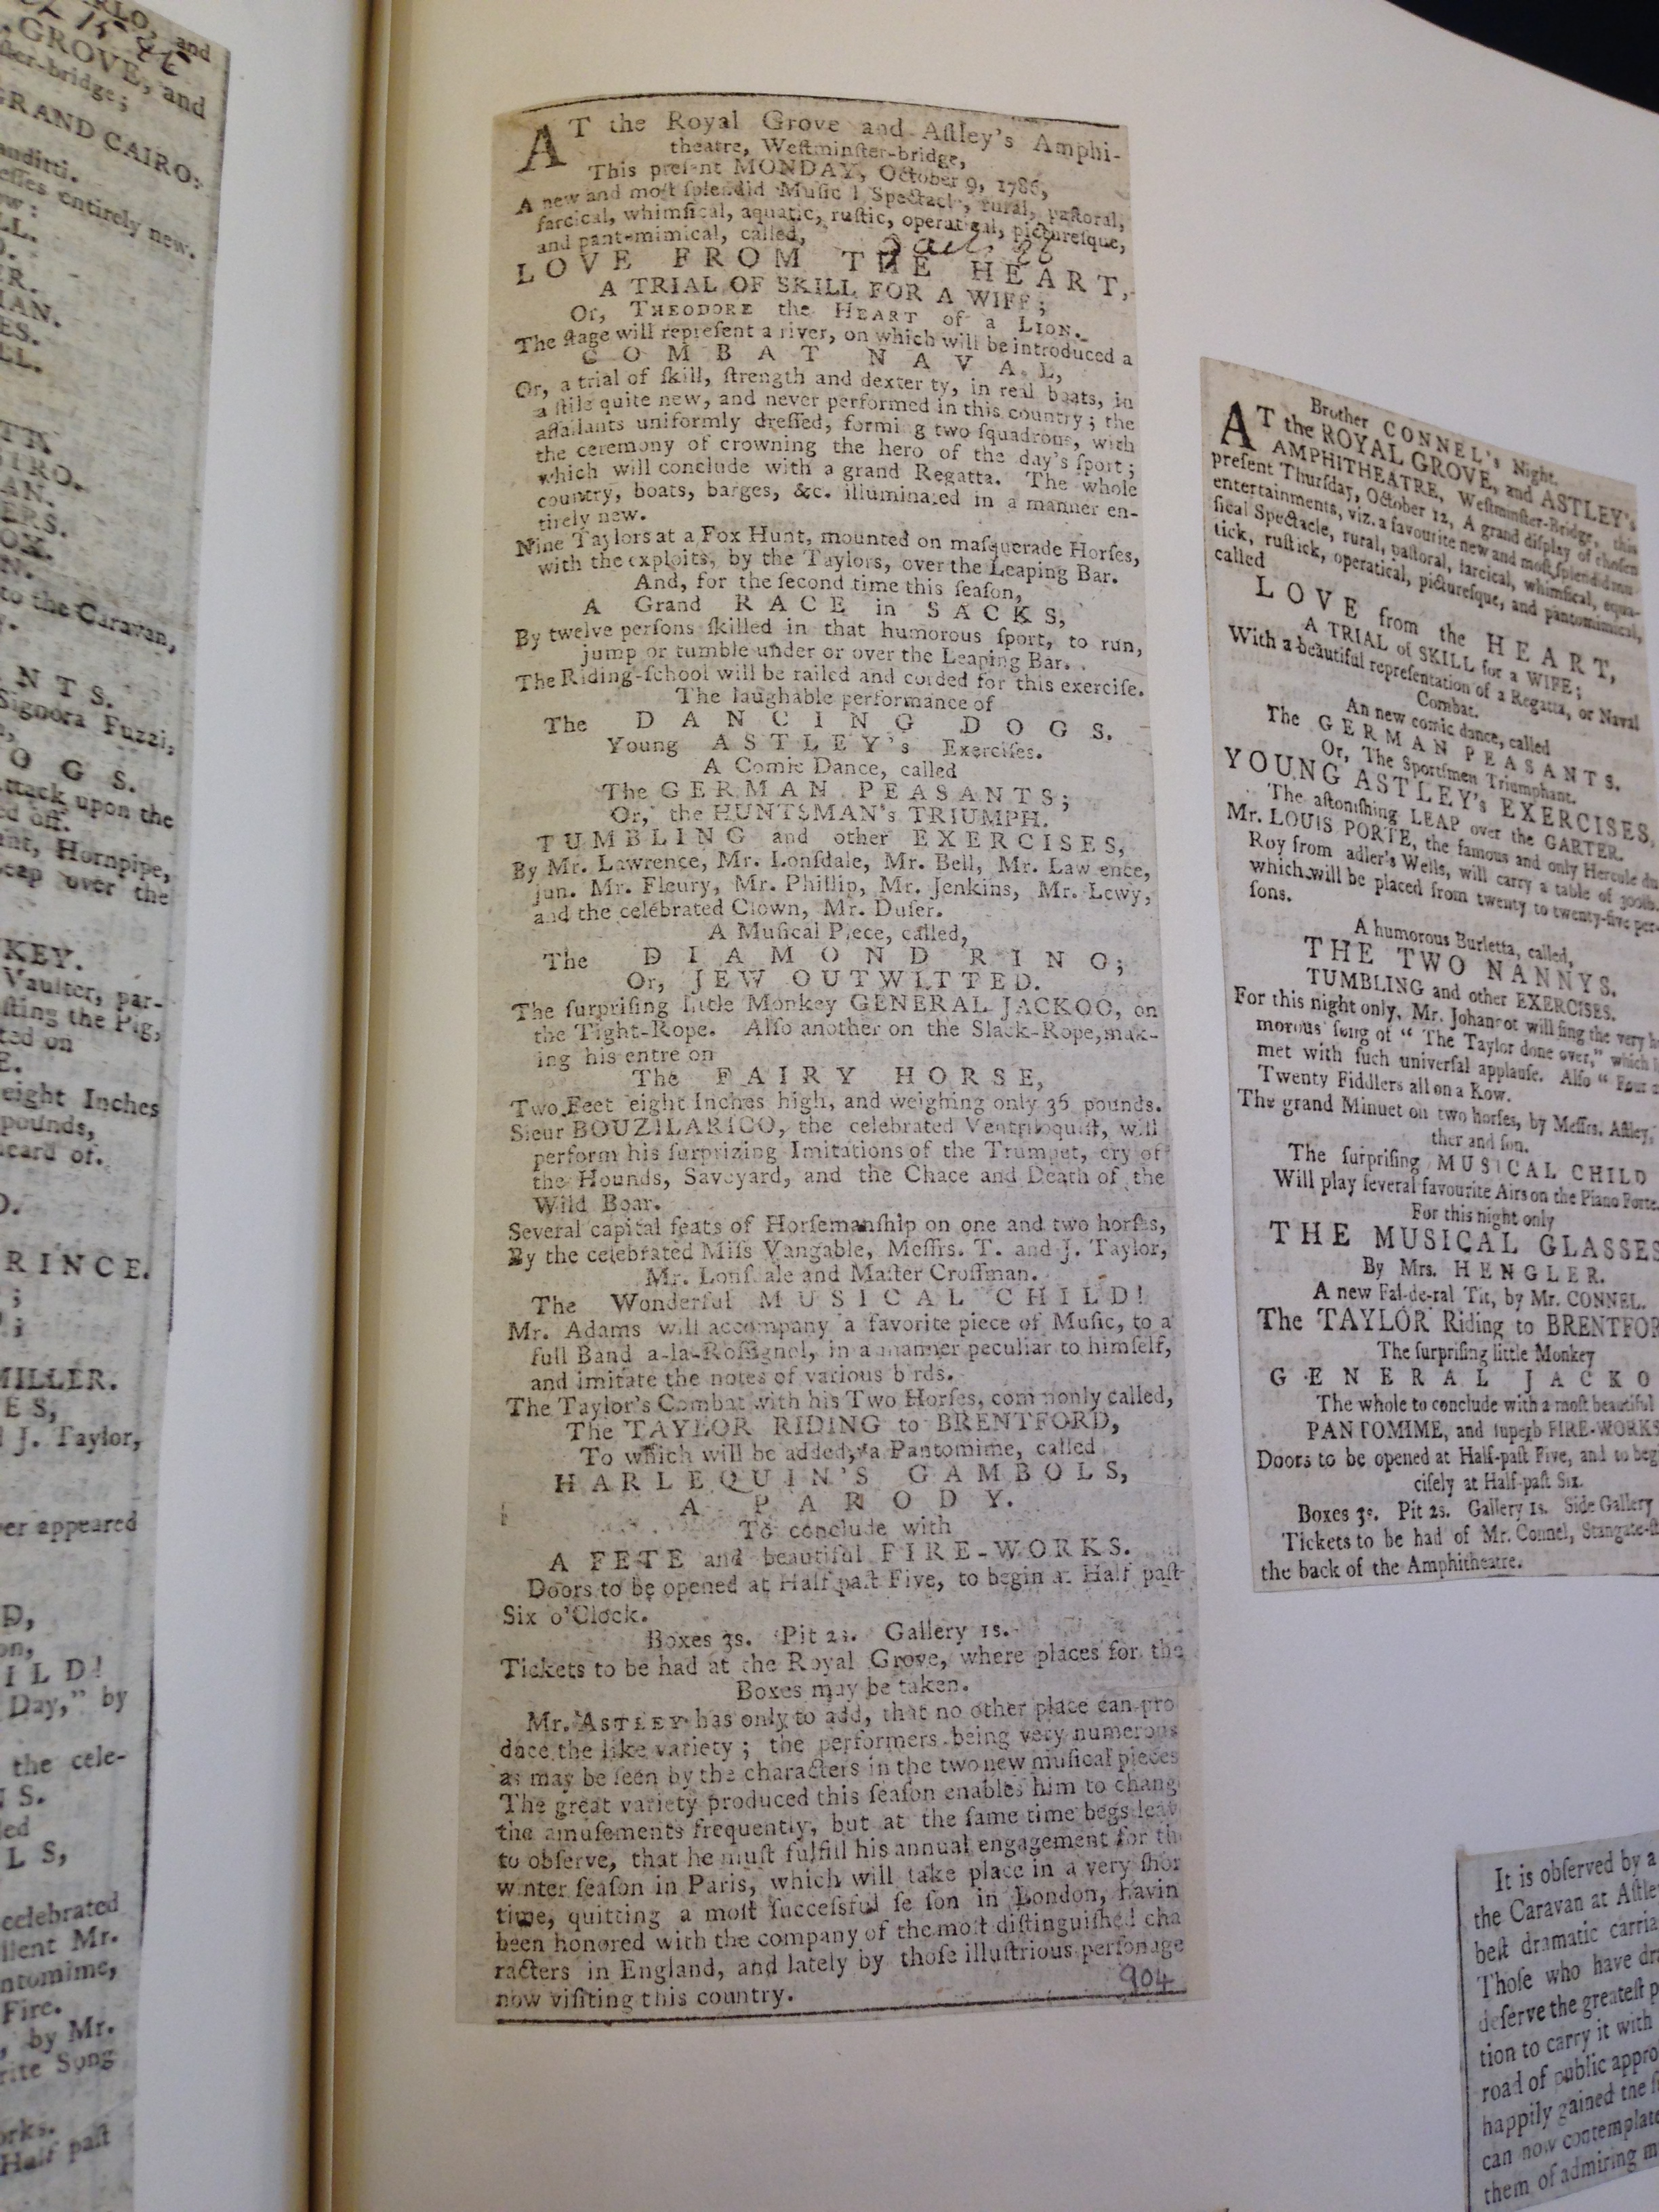 RLO, and
GROVE, and
ter-bridge;
GRAND CAIRO:
anditti.
esses entirely new.
ow:
LL.
O.
ER.
MAN.
ES.
LL.
STRO.
AN.
ERS.
OX.
N.
to the Caravan,
NTS.
Signora Fuzzi,
OGS.
ttack upon the
ed off.
Hornpipe,
eap over the
KEY.
Vaulter, par-
sting the Pig,
ted on
E.
eight Inches
pounds,
heard of.
O.
RINCE.
;
MILLER.
ES,
J. Taylor,
ver appeared
D,
on,
ILD!
Day," by
the cele-
NS.
led
LS,
celebrated
llent Mr.
ntomime,
Fire.
, by Mr.
rite Song
orks.
Half paſt
AT the Royal Grove and Aſtley's Amphi-
theatre, Weſtminſter-bridge,
This preſ-nt MONDAY, October 9, 1786,
A new and moſt ſplendid Muſic l Spectacl-, rural, paſtoral,
farcical, whimſical, aquatic, ruſtic, operatical, pictureſque,
and pantomimical, called,
LOVE FROM THE HEART,
A TRIAL OF SKILL FOR A WIFE;
Or, THEODORE the HEART of a LION.
The ſtage will repreſent a river, on which will be introduced a
COMBAT NAVAL,
Or, a trial of ſkill, ſtrength and dexter ty, in real boats, in
a ſtile quite new, and never performed in this country; the
aſſailants uniformly dreſſed, forming two ſquadrons, with
the ceremony of crowning the hero of the day's ſport;
which will conclude with a grand Regatta. The whole
country, boats, barges, &c. illuminated in a manner en-
tirely new.
Nine Taylors at a Fox Hunt, mounted on maſquerade Horſes,
with the exploits, by the Taylors, over the Leaping Bar.
And, for the ſecond time this ſeaſon,
A Grand RACE in SACKS,
By twelve perſons ſkilled in that humorous ſport, to run,
jump or tumble under or over the Leaping Bar.
The Riding-ſchool will be railed and corded for this exerciſe.
The laughable performance of
The DANCING DOGS.
Young ASTLEY's Exerciſes.
A Comic Dance, called
The GERMAN PEASANTS;
Or, the HUNTSMAN's TRIUMPH.
TUMBLING and other EXERCISES,
By Mr. Lawrence, Mr. Lonſdale, Mr. Bell, Mr. Law ence,
jun. Mr. Fleury, Mr. Phillip, Mr. Jenkins, Mr. Lewy,
and the celébrated Clown, Mr. Duſer.
A Muſical Piece, called,
The DIAMOND RING;
Or, JEW OUTWITTED.
The ſurpriſing little Monkey GENERAL JACKOO, on
the Tight-Rope. Alſo another on the Slack-Rope, mak-
ing his entre on
The FAIRY HORSE,
Two Feet eight Inches high, and weighing only 36 pounds.
Sieur BOUZILARICO, the celebrated Ventriloquiſt, will
perform his ſurprizing Imitations of the Trumpet, cry of
the Hounds, Savoyard, and the Chace and Death of the
Wild Boar.
Several capital feats of Horſemanſhip on one and two horſes,
By the celebrated Miſs Vangable, Meſſrs. T. and J. Taylor,
Mr. Lonſdale and Maſter Croſſman.
The Wonderful MUSICAL CHILD!
Mr. Adams will accompany a favorite piece of Muſic, to a
full Band a-la-Roſſignol, in a manner peculiar to himſelf,
and imitate the notes of various b rds.
The Taylor's Combat with his Two Horſes, commonly called,
The TAYLOR RIDING to BRENTFORD,
To which will be added, a Pantomime, called
HARLEQUIN'S GAMBOLS,
A PARODY.
To conclude with
A FETE and beautiful FIRE-WORKS.
Doors to be opened at Half paſt Five, to begin at Half paſt
Six o'Clock.
Boxes 3s. Pit 2s. Gallery 1s.
Tickets to be had at the Royal Grove, where places for the
Boxes may be taken.
Mr. ASTLEY has only to add, that no other place can pro
duce the like variety; the performers being very numerous
as may be ſeen by the characters in the two new muſical pieces
The great variety produced this ſeaſon enables him to chang
the amuſements frequently, but at the ſame time begs leav
to obſerve, that he muſt fulfill his annual engagement for th
winter ſeaſon in Paris, which will take place in a very ſhor
time, quitting a moſt ſucceſsful ſe ſon in London, havin
been honored with the company of the moſt diſtinguiſhed cha
racters in England, and lately by thoſe illuſtrious perſonage
now viſiting this country.
904
Brother CONNEL's Night.
AT the ROYAL GROVE, and ASTLEY's
AMPHITHEATRE, Weſtminſter-Bridge, this
preſent Thurſday, October 12, A grand diſplay of choſen
entertainments, viz. a favourite new and moſt ſplendid mu-
ſical Spectacle, rural, paſtoral, farcical, whimſical, equa-
tick, ruſtick, operatical, pictureſque, and pantomimical,
called
LOVE from the HEART,
A TRIAL of SKILL for a WIFE;
With a beautiful repreſentation of a Regatta, or Naval
Combat.
An new comic dance, called
The GERMAN PEASANTS.
Or, The Sportſmen Triumphant.
YOUNG ASTLEY's EXERCISES,
The aſtoniſhing LEAP over the GARTER.
Mr. LOUIS PORTE, the famous and only Hercule du
Roy from adler's Wells, will carry a table of 300lb.
which will be placed from twenty to twenty-five per-
ſons.
A humorous Burletta, called,
THE TWO NANNYS.
TUMBLING and other EXERCISES.
For this night only, Mr. Johannot will ſing the very h
morous ſong of "The Taylor done over," which
met with ſuch univerſal applauſe. Alſo "Four
Twenty Fiddlers all on a Row.
The grand Minuet on two horſes, by Meſſrs. Aſtley,
ther and ſon.
The ſurpriſing MUSICAL CHILD
Will play ſeveral favourite Airs on the Piano Forte.
For this night only
THE MUSICAL GLASSES
By Mrs. HENGLER.
A new Fal-de-ral Tit, by Mr. CONNEL.
The TAYLOR Riding to BRENTFOR
The ſurpriſing little Monkey
GENERAL JACKO
The whole to conclude with a moſt beautiful
PANTOMIME, and ſuperb FIRE-WORKS
Doors to be opened at Half-paſt Five, and to beg
ciſely at Half-paſt Six.
Boxes 3s. Pit 2s. Gallery 1s. Side Gallery
Tickets to be had of Mr. Connel, Stangate-ſt
the back of the Amphitheatre.
It is obſerved by a
the Caravan at Aſtle
beſt dramatic carria
Thoſe who have dr
deſerve the greateſt p
tion to carry it with
road of public appro
happily gained the
can now contemplat
them of admiring m